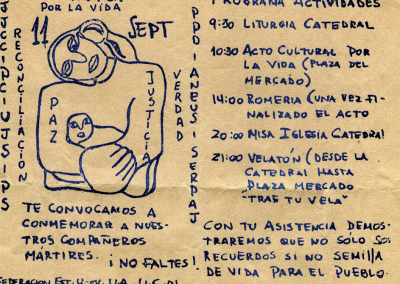 POR LA VIDA
11 SEPT
JJCCIPCIUJSIPS
RECONCILIACION
PAZ
JUSTICIA
VERDAD
PPDIANEUSISERPAJ
TE CONVOCAMOS A
CONMEMORAR A NUES-
TROS COMPAÑEROS
MÁRTIRES.
¡NO FALTES!
PROGRAMA ACTIVIDADES
9:30 LITURGIA CATEDRAL
10:30 ACTO CULTURAL POR
LA VIDA (PLAZA DEL
MERCADO)
14:00 ROMERIA (UNA VEZ FI-
NALIZADO EL ACTO
20:00 MISA IGLESIA CATEDRAL
21:00 VELATÓN (DESDE LA
CATEDRAL HASTA
PLAZA MERCADO
"TRAE TU VELA"
CON TU ASISTENCIA DEMOS-
TRAREMOS QUE NO SOLO SON
RECUERDOS SI NO SEMILLA
DE VIDA PARA EL PUEBLO.